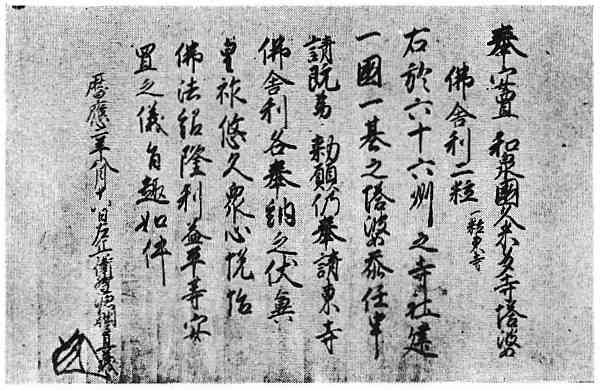 奉安置 和泉國久米多寺塔婆
佛舎利二粒 一粒東寺
右於六十六州之寺社建
一國一基之塔婆忝任申
請既爲 勅願仍奉請東寺
佛舎利各奉納之伏冀
皇祚悠久衆心悦怡
佛法紹隆利益平等安
置之儀旨趣如件
暦應二年八月十八日左兵衛督源朝臣直義